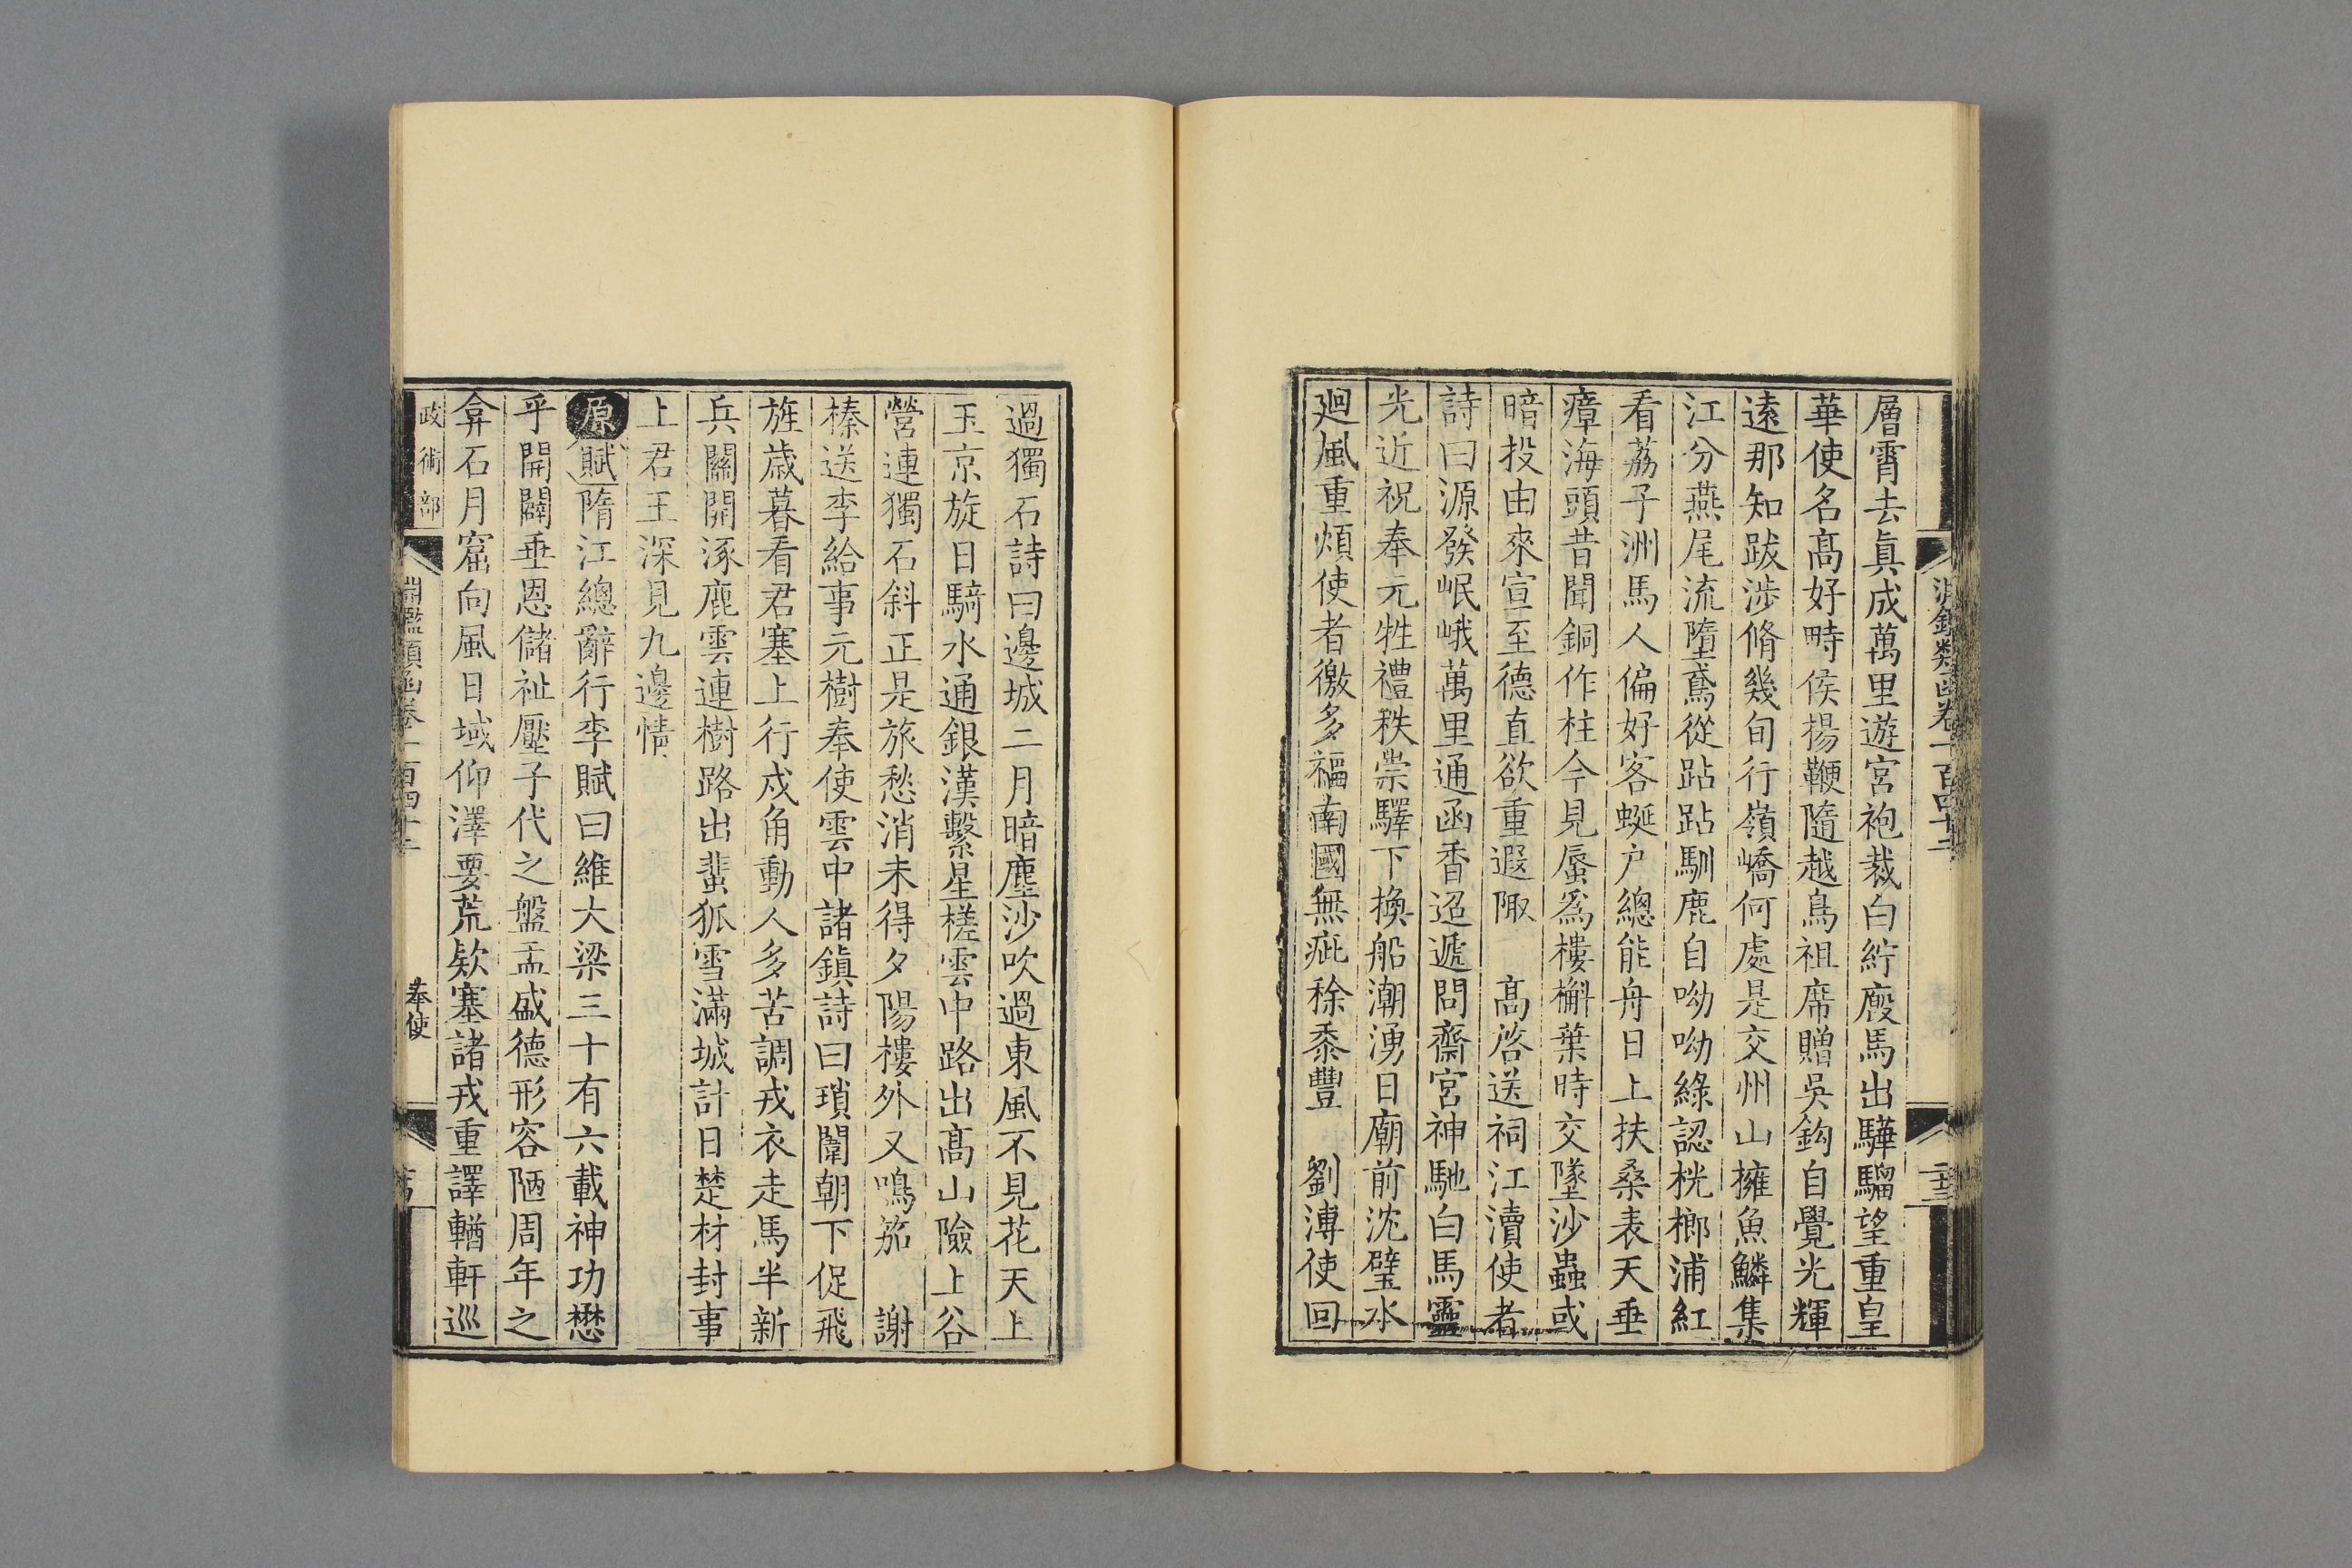 淵鑑類函卷一百四十二
二十三
層霄去眞成萬里遊宮袍裁白紵廄馬出驊騮望重皇
華使名髙好畤侯揚鞭隨越鳥祖席贈吳鈎自覺光輝
遠那知跋涉脩幾旬行嶺嶠何處是交州山擁魚鱗集
江分燕尾流墮鳶從跕跕馴鹿自呦呦綠認桄榔浦紅
看荔子洲馬人偏好客蜒户總能舟日上扶桑表天垂
瘴海頭昔聞銅作柱今見蜃爲樓檞葉時交墜沙蟲或
暗投由來宣至德直欲重遐陬　髙啓送祠江瀆使者
詩曰源發岷峨萬里通函香迢遞問齋宮神馳白馬靈
光近祝奉元牲禮秩崇驛下換船潮湧日廟前沈璧水
廻風重煩使者徼多福南國無疵稌黍豐　劉溥使回
過獨石詩曰邊城二月暗塵沙吹過東風不見花天上
玉京旋日騎水通銀漢繫星槎雲中路出髙山險上谷
營連獨石斜正是旅愁消未得夕陽樓外又鳴笳　謝
榛送李給事元樹奉使雲中諸鎭詩曰瑣闈朝下促飛
旌歳暮看君塞上行戍角動人多苦調戎衣走馬半新
兵關開涿鹿雲連樹路出蜚狐雪滿城計日楚材封事
上君王深見九邊情
原賦隋江總辭行李賦曰維大梁三十有六載神功懋
乎開闢垂恩儲祉壓子代之盤盂盛德形容陋周年之
弇石月窟向風日域仰澤要荒欵塞諸戎重譯輶軒巡
政術部
淵鑑類函卷一百四十二
奉使